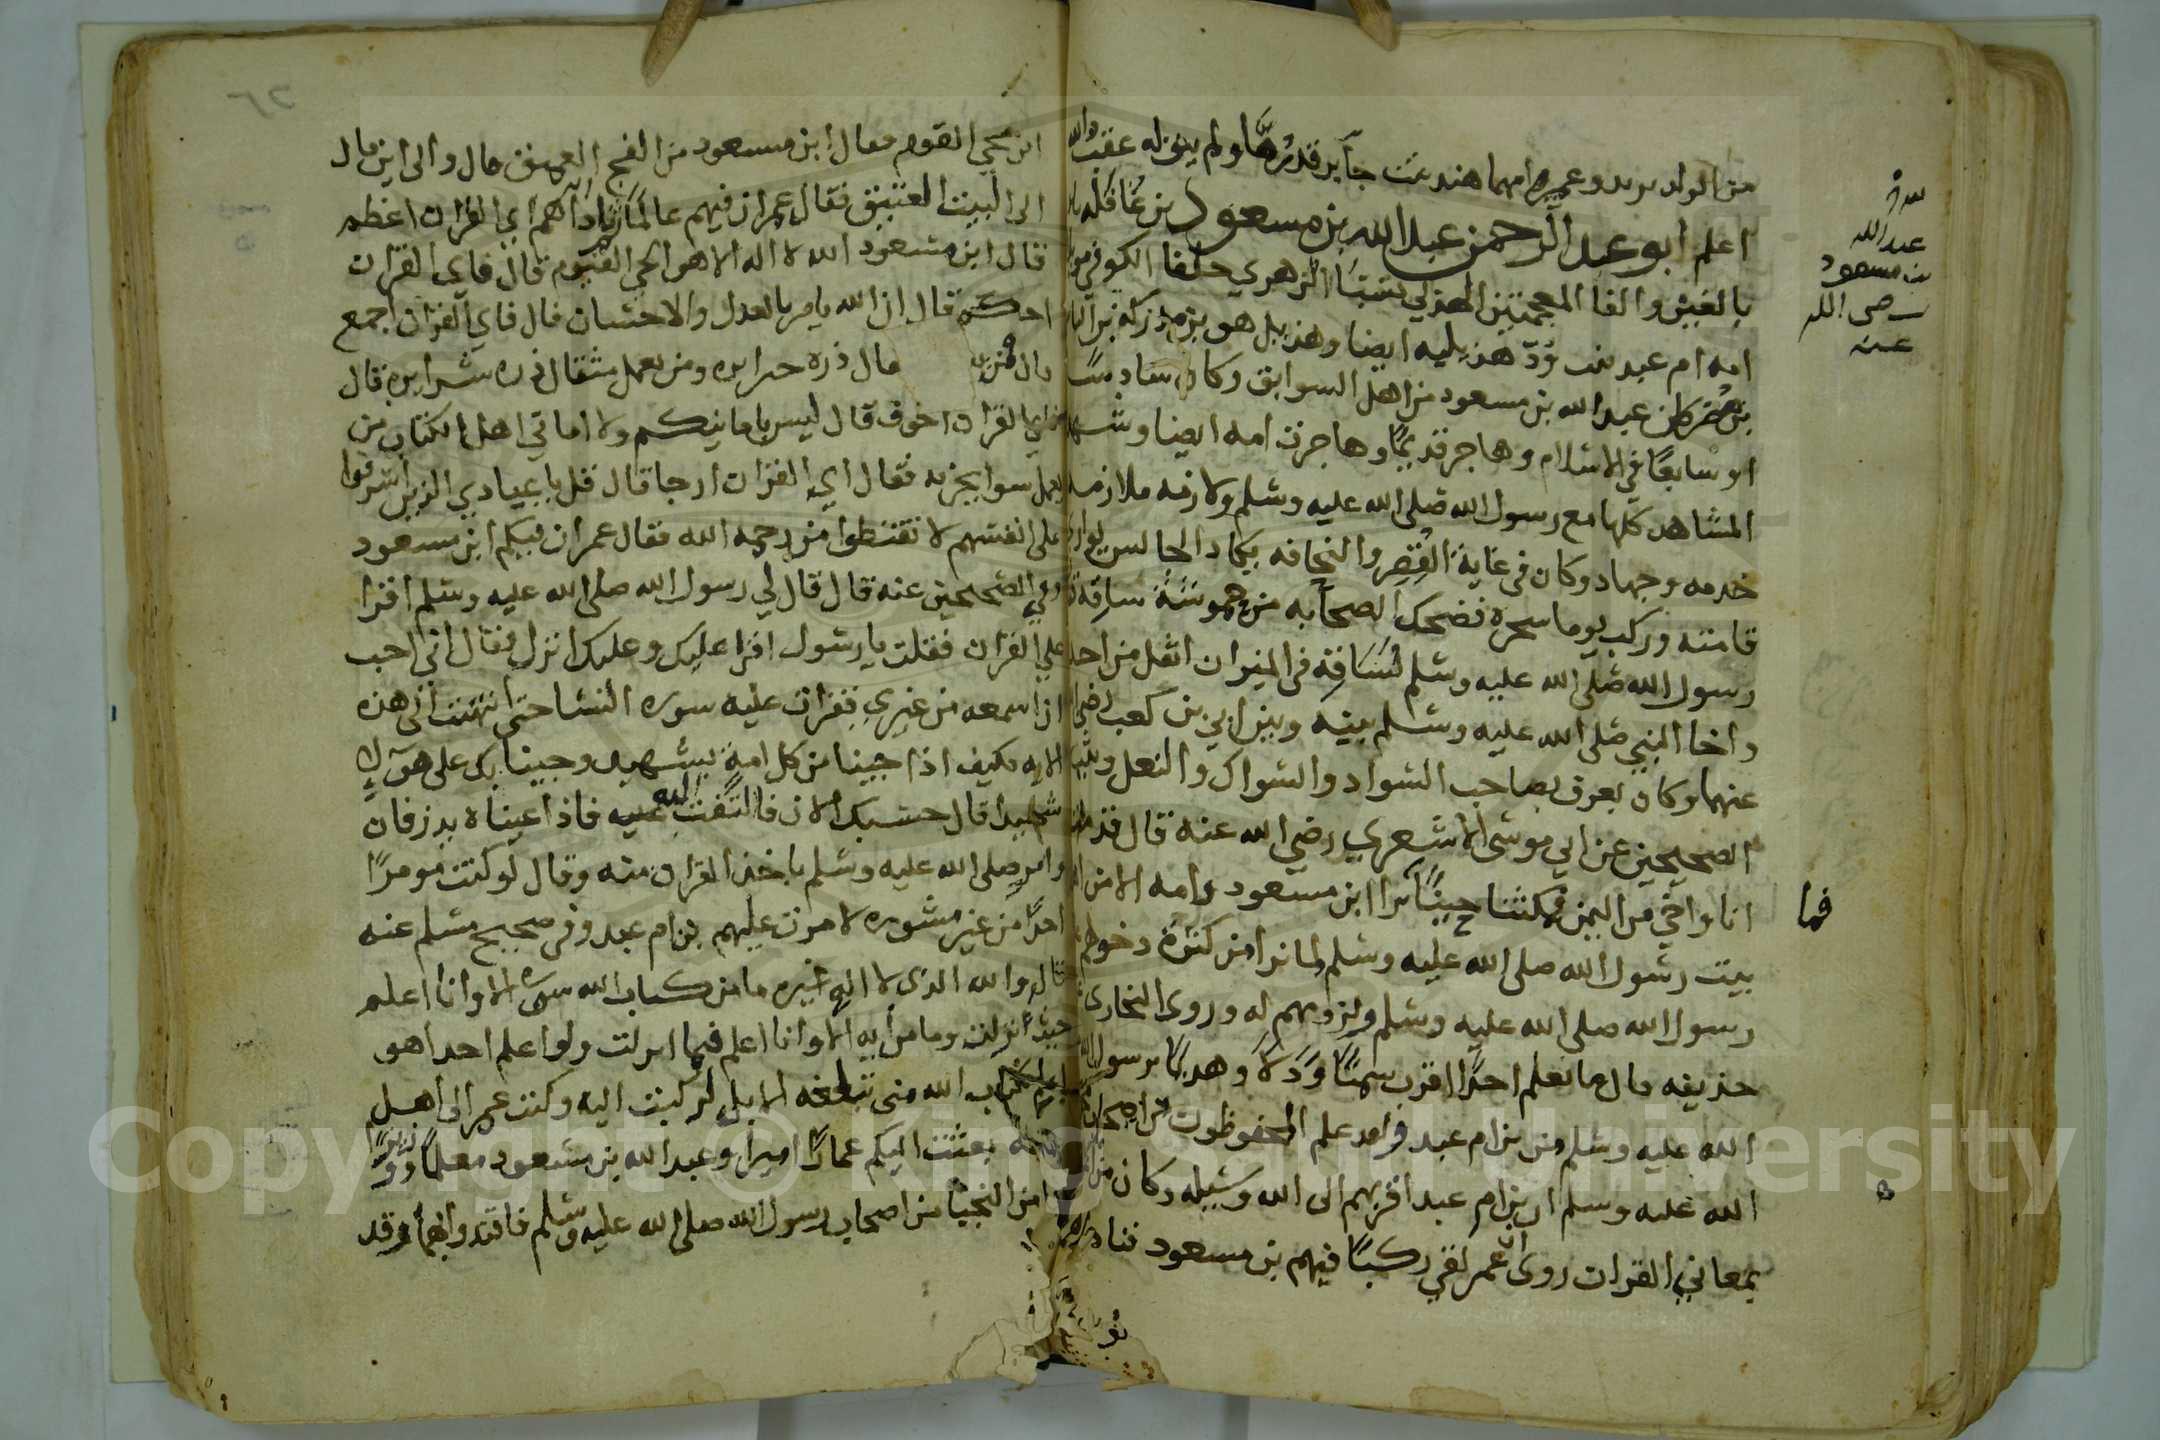 من الولد يريد وعميره امهما هند بنت جابر قدرهما ولم يبق له عقب والله
اعلم ابو عبد الرحمن عبد الله بن مسعود بن غافله
بالغين والفا المعجمتين الهذلي نسبًا الزهري حلفا الكوفي
امه ام عبد بنت ودّ هذيليه ايضا وهذيل هو بن مدركه بن
بن مضر كان عبد الله بن مسعود من اهل السوابق وكان سادسًا
او سابعًا في الاسلام وهاجر قديمًا وهاجرت امه ايضا وشهد
المشاهد كلها مع رسول الله صلى الله عليه وسلم ولازمه ملازمه
خدمه وجهاد وكان في غاية القصر والنحافه يكاد الجالس يوازي
قامته وركب يوما شجره فضحك الصحابه من حموشة ساقه
رسول الله صلى الله عليه وسلم لساقه في الميزان اثقل من احد
واخا النبي صلى الله عليه وسلم بينه وبين ابي بن كعب رضي
عنهما وكان يعرف بصاحب السواد والسواك والنعل
الصحيحين عن ابي موسى الاشعري رضي الله عنه قال قدمت
انا واخي من اليمن فمكثنا حينًا نرا ابن مسعود وامه الا من
بيت رسول الله صلى الله عليه وسلم لما نرا من كثرة دخولهم
رسول الله صلى الله عليه وسلم ولزومهم له وروى البخاري
حذيفه قال ما نعلم احدًا اقرب سمتًا ودلا وهديًا برسول الله
الله عليه وسلم من بن ام عبد ولقد علم المحفوظون من اصحاب
الله عليه وسلم ان بن ام عبد اقربهم الى الله وسيله وكان من
بمعاني القران روى ان عمر لقي ركبًا فيهم بن مسعود فنادا
عبد الله
بن مسعود
رضى الله
عنه
فما
٦٢
اين مجي القوم فقال ابن مسعود من الفج العميق قال والى اين قال
الى البيت العتيق فقال عمر ان فيهم عالمًا ثم ناداهم اي القران اعظم
قال ابن مسعود الله لا اله الا هو الحي القيوم قال فاي القران
احكم قال ان الله يامر بالعدل والاحسان قال فاي القران اجمع
قال فمن مثقال ذره خيرا يره ومن يعمل مثقال ذره شرا يره قال
فاي القران اخوف قال ليس بامانيكم ولا اماني اهل الكتاب من
يعمل سوا يجز به فقال اي القران ارجا قال قل يا عبادي الذين اسرفوا
على انفسهم لا تقنطوا من رحمه الله فقال عمر ان فيكم ابن مسعود
وفي الصحيحين عنه قال قال لي رسول الله صلى الله عليه وسلم اقرا
علي القران فقلت يا رسول اقرا عليك وعليك انزل فقال اني احب
ان اسمعه من غيري فقرات عليه سوره النسا حتى انتهيت الى هذه
الايه فكيف اذا جينا من كل امه بشهيد وجينا بك على هولاء
شهيدا قال حسبك الان فالتفت اليه فاذا عيناه يذرفان
وامر صلى الله عليه وسلم باخذ القران منه وقال لو كنت مومرًا
احدًا من غير مشوره لامرت عليهم بن ام عبد وفي صحيح مسلم عنه
قال والله الذي لا اله غيره ما من كتاب الله سوره الا وانا اعلم
حيث انزلت وما من ايه الا وانا اعلم فيما انزلت ولو اعلم احدا هو
اعلم بكتاب الله مني تبلغه الابل لركبت اليه وكتب عمر الى اهل
بعثت اليكم عمارًا اميرًا وعبد الله بن مسعود معلمًا ووزيرًا
من النجبا من اصحاب رسول الله صلى الله عليه وسلم فاقتدوا بهما وقد
Copyright © King University